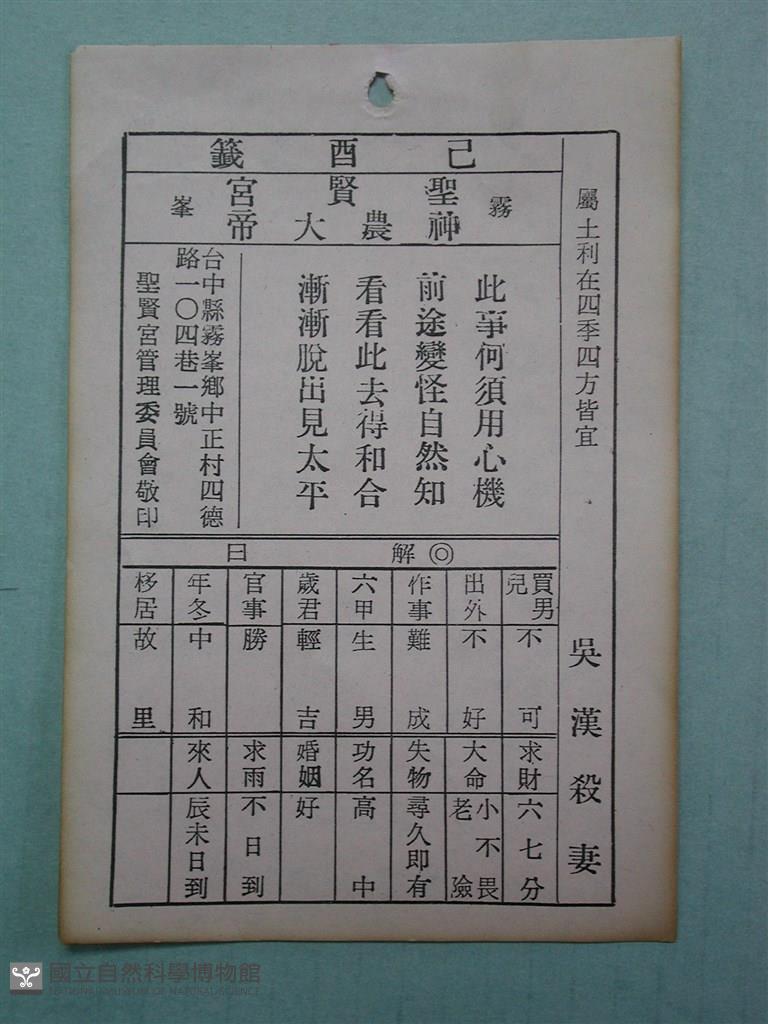 己酉籤
霧
聖賢宮
神農大帝
峯
屬土利在四季四方皆宜
吳漢殺妻
此事何須用心機
前途變怪自然知
看看此去得和合
漸漸脫出見太平
台中縣霧峯鄉中正村四德
路一〇四巷一號
聖賢宮管理委員會敬印
◎解曰
買男兒 不可
出外 不好
作事 難成
六甲 生男
歲君 輕吉
官事 勝
年冬 中和
移居 故里
求財 六七分
大命 小不畏老險
失物 尋久即有
功名 高中
婚姻 好
求雨 不日到
來人 辰未日到
國立自然科學博物館
NATIONAL MUSEUM OF NATURAL SCIENCE